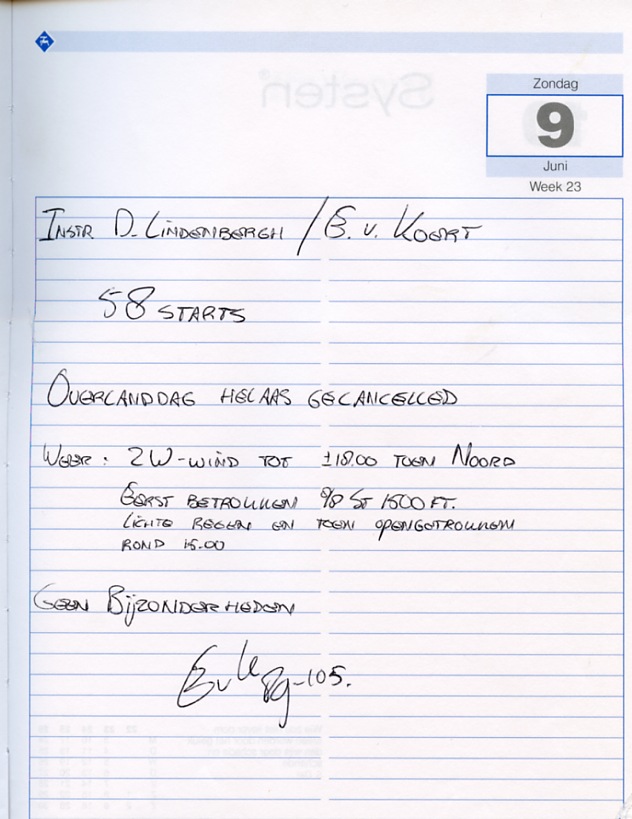 Zondag
9
Juni
Week 23
INSTR D. LINDENBERGH / E. v. KOERT
58 STARTS
OVERLANDDAG HELAAS GECANCELLED
WEER: ZW-WIND TOT ±18.00 TOEN NOORD
EERST BETROKKEN 8/8 ST 1500 FT.
LICHTE REGEN EN TOEN OPENGETROKKEN
ROND 15.00
GEEN BIJZONDERHEDEN
-105.